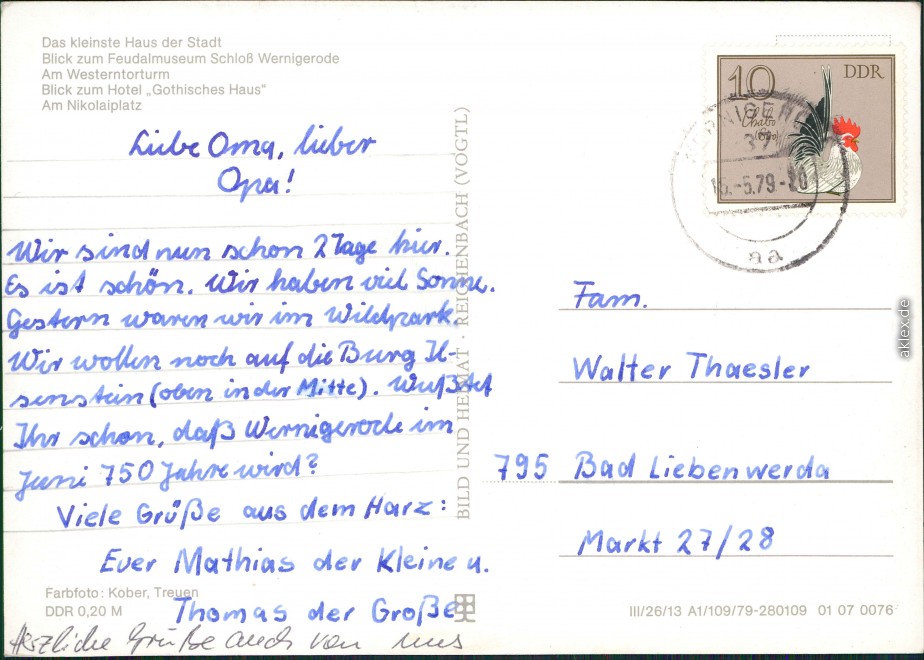 Das kleinste Haus der Stadt
Blick zum Feudalmuseum Schloß Wernigerode
Am Westerntorturm
Blick zum Hotel „Gothisches Haus"
Am Nikolaiplatz
Liebe Oma, lieber
Opa!
Wir sind nun schon 2 Tage hier.
Es ist schön. Wir haben viel Sonne.
Gestern waren wir im Wildpark.
Wir wollen noch auf die Burg Il-
senstein (oben in der Mitte). Wußtet
Ihr schon, daß Wernigerode im
Juni 750 Jahre wird?
Viele Grüße aus dem Harz:
Euer Mathias der Kleine u.
Thomas der Große
Herzliche Grüße auch von uns
Farbfoto: Kober, Treuen
DDR 0,20 M
BILD UND HEIMAT · REICHENBACH (VOGTL)
10
DDR
Chabo
37
-5.79.-20
aa
Fam.
Walter Thaesler
795 Bad Liebenwerda
Markt 27/28
III/26/13 A1/109/79-280109 01 07 0076
aklex.de